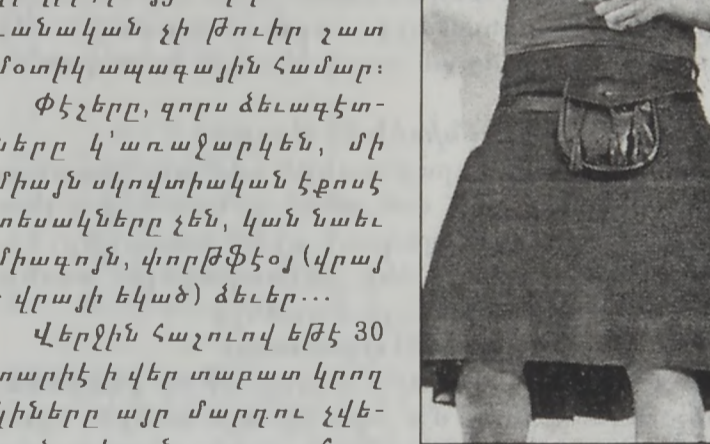 չի թուիր շատ
մօտիկ ապագային համար։
Փէշերը, զորս ձեւագէտ-
ները կ՚առաջարկեն, մի
միայն սկովտիական էքոսէ
տեսակները չեն, կան նաեւ
միագոյն, փորթֆէօյ (վրայ
վրայի եկած) ձեւեր...
Վերջին հաշուով եթէ 30
տարիէ ի վեր տաբատ կրող
կիները այր մարդու չվե-